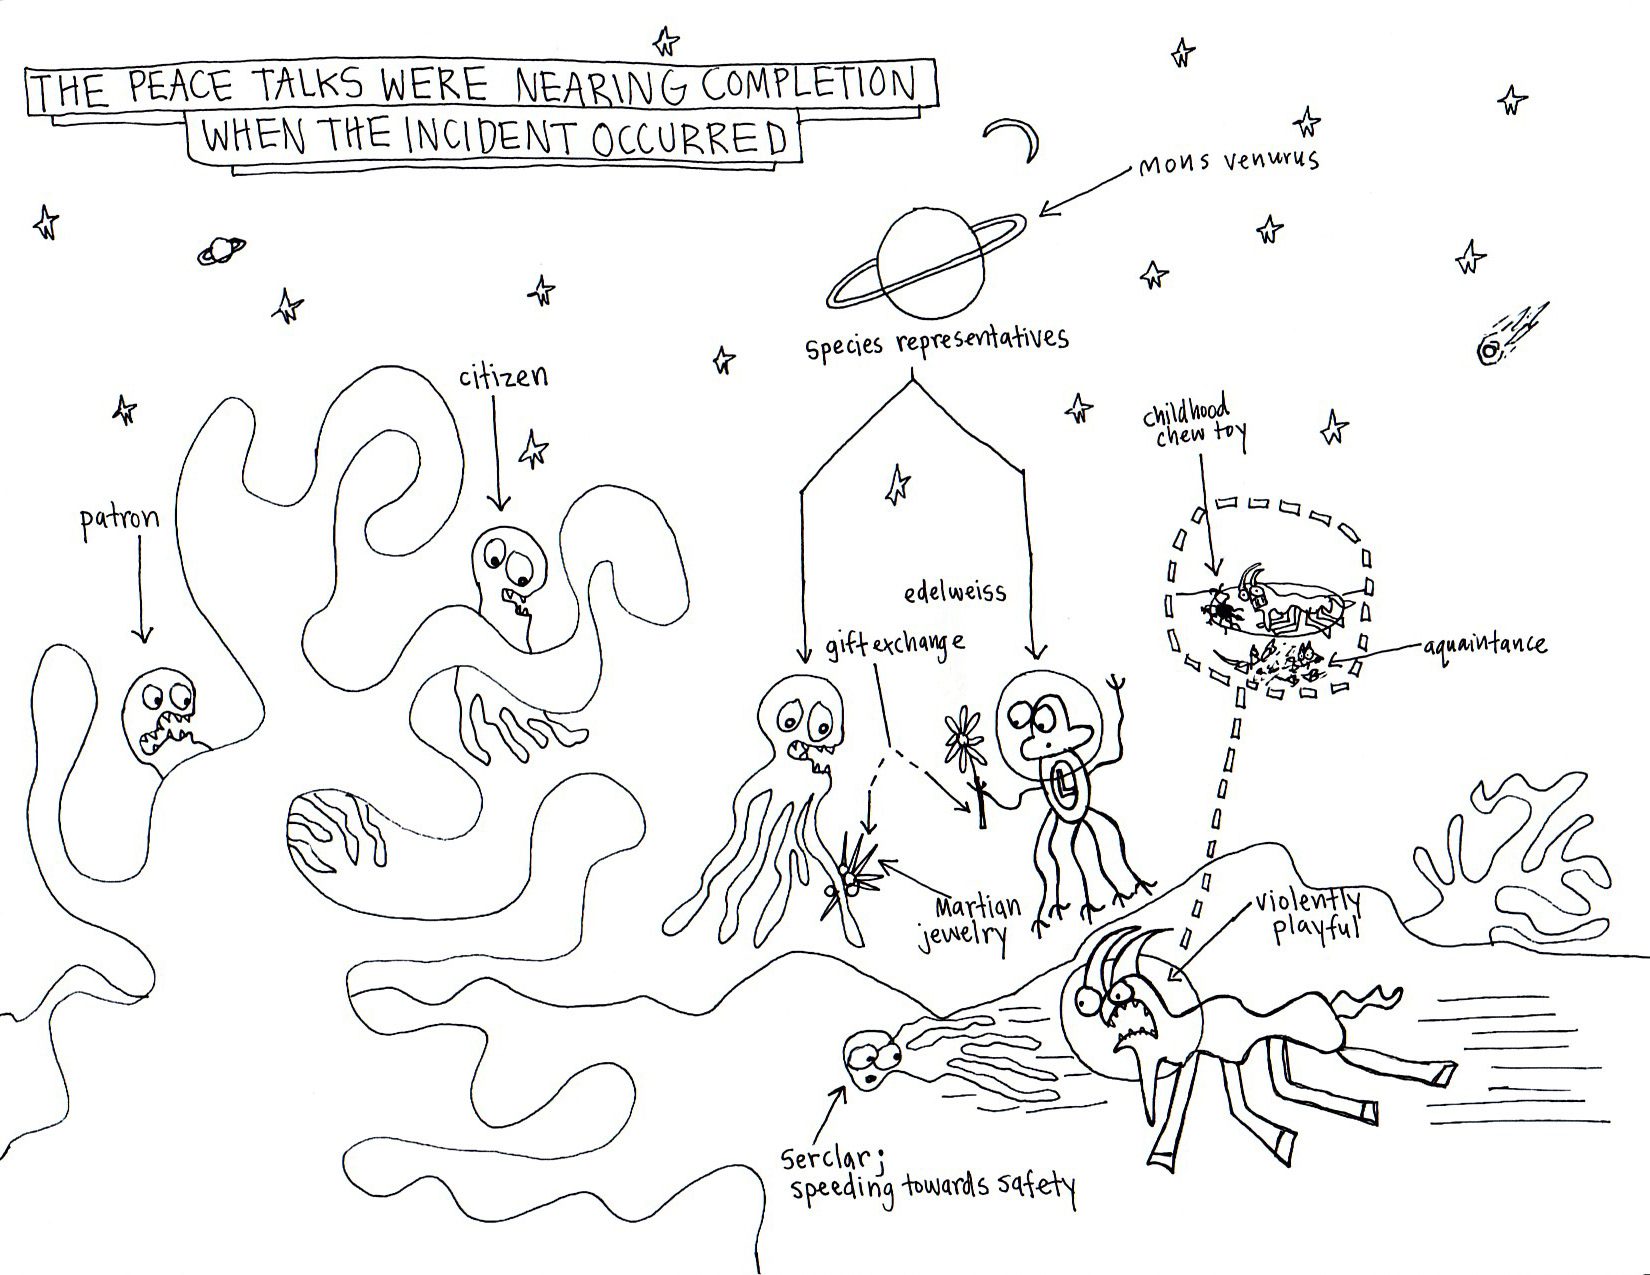 THE PEACE TALKS WERE NEARING COMPLETION
WHEN THE INCIDENT OCCURRED
mons venurus
species representatives
citizen
childhood
chew toy
patron
edelweiss
gift exchange
aquaintance
L
Martian
jewelry
violently
playful
Serclar;
speeding towards safety